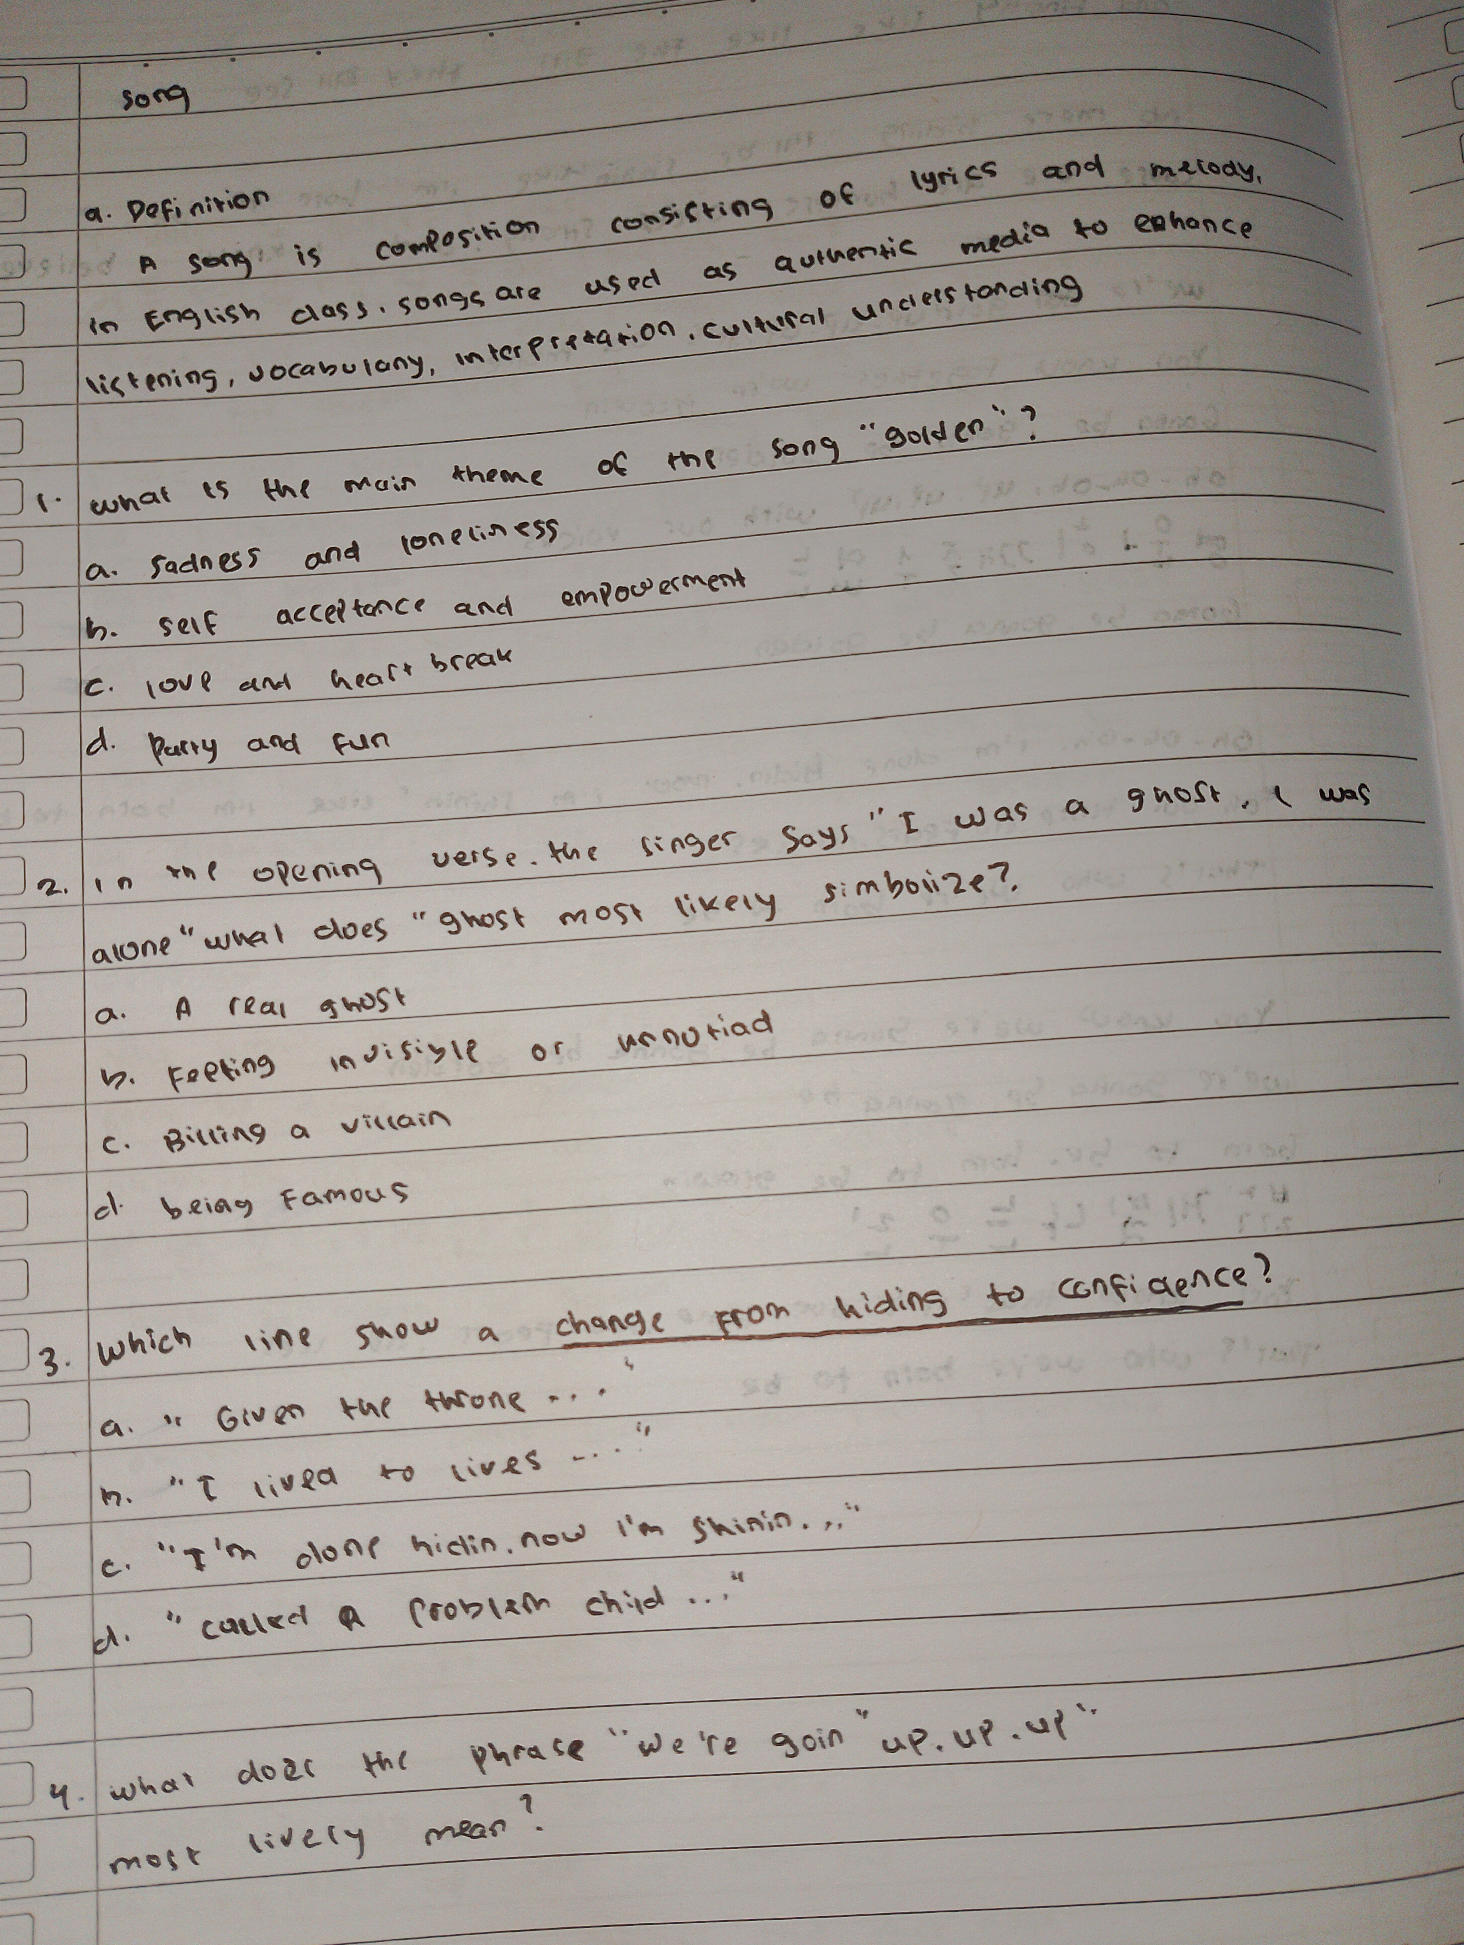 song
a. Definition
A song is composition consisting of lyrics and melody.
in English class. songs are used as authentic media to enhance
listening, vocabulany, interpretation, cultural understanding
1. what is the main theme of the song "golden"?
a. sadness and loneliness
b. self acceptance and empowerment
c. love and heart break
d. party and fun
2. in the opening verse. the singer says "I was a ghost, I was
alone" what does "ghost most likely simbolize?
a. A real ghost
b. Feeling invisible or unnotiad
c. Billing a villain
d. being Famous
3. which line show a change from hiding to confidence?
a. "Given the throne ..."
b. "I lived to lives ..."
c. "I'm done hidin. now I'm shinin..."
d. "called a problem child ..."
4. what does the phrase "we're goin" up. up. up"
most lively mean?